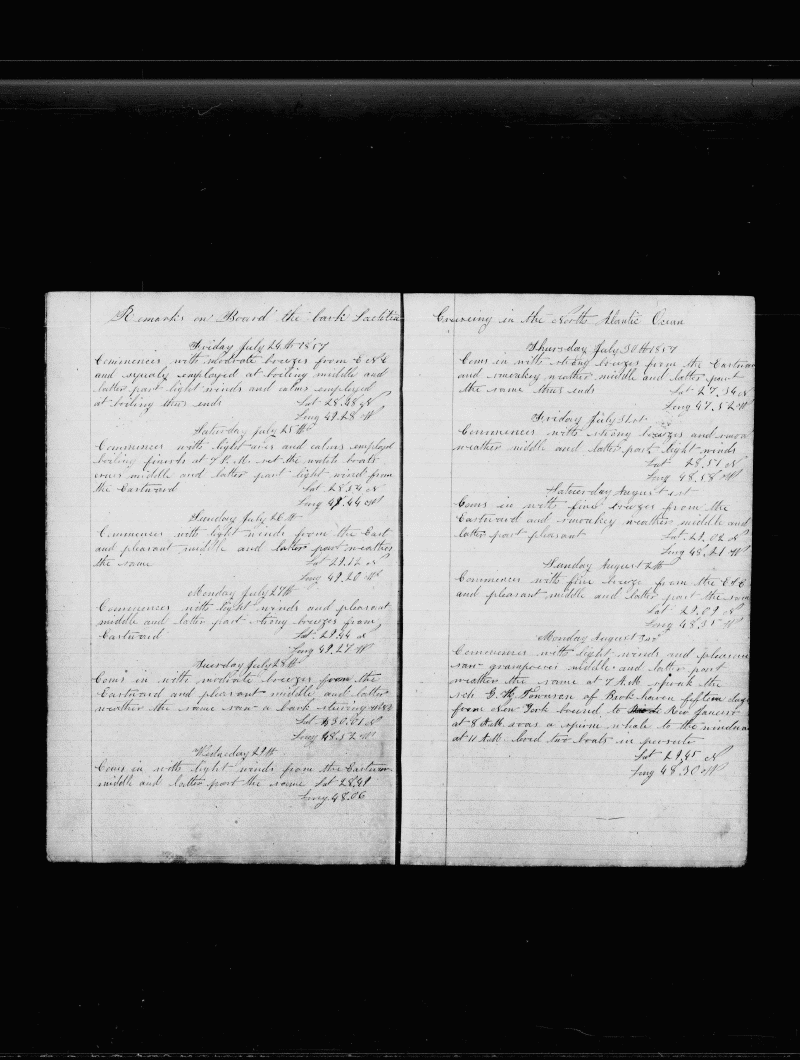 Remarks on Board the bark Laetitia
Friday July 24th 1857
Commences with moderate breezes from E N E
and squaly employed at boiling middle and
latter part light winds and calms employed
at boiling thus ends Lat 28.48 N
Long 49.28 W
Saturday July 25th
Commences with light aires and calms employed
boiling finisht at 7 P.M. set the watch boats
crews middle and latter part light wind from
the Eastward Lat 28.54 N
Long 49.44 W
Sunday July 26th
Commences with light winds from the East
and pleasant middle and latter part weather
the same Lat 29.12 N
Long 49.20 W
Monday July 27th
Commences with light winds and pleasant
middle and latter part strong breezes from
Eastward Lat 29.44 N
Long 49.27 W
Tuesday July 28th
Coms in with moderate breezes from the
Eastward and pleasant middle and latter
weather the same saw a bark steering
Lat 30.01 N
Long 48.52 W
Wedsneday 29th
Coms in with light winds from the Eastwar
middle and latter part the same Lat 28.49
Long 48.06
Cruseing in the North Atlantic Ocean
Thursday July 30th 1857
Coms in with strong breezes from the Eastwar
and smoakey weather middle and latter part
the same thus ends Lat 27.54 N
Long 47.52 W
Friday July 31st
Commences with strong breezes and smoa
weather middle and latter part light winds
Lat 28.51 N
Long 48.58 W
Satuerday August 1st
Coms in with fine breezes from the
Eastward and smoakey weather middle and
latter part pleasant Lat 29.02 N
Long 48.21 W
Sunday August 2th
Commences with fine breeze from the E N E
and pleasant middle and latter part the same
Lat 29.09 N
Long 48.35 W
Monday August 3rd
Commences with light winds and pleasan
saw grampuses middle and latter part
weather the same at 7 A.M. spoak the
sch G. H. Townsen of Brook haven fifteen days
from New York bound to Rio Janeiro
at 8 A.M. saw a sperm whale to the windwa
at 11 A.M. lored two boats in persute
Lat 29.45 N
Long 48.30 W